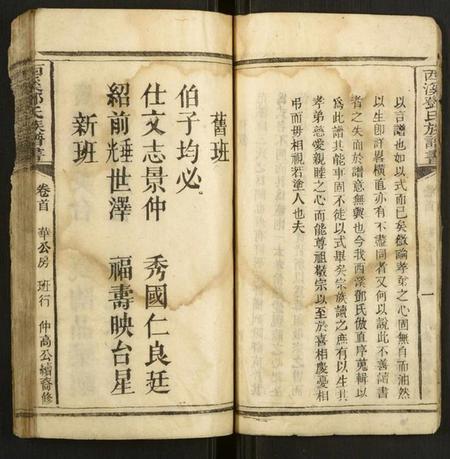 西溪鄧氏族譜書
卷首
一
以言譜也如以式而已矣徵論孝弟之心固無自而油然
以生卽詳畧橫直亦有不盡同者又何以說此不善譜書
者之失而於譜意無與也今我西溪鄧氏倣直序蒐輯以
爲此譜其能車固不徒以式畢矣宗族讀之庶有以生其
孝弟慈愛親睦之心而能尊祖敬宗以至於喜相慶憂相
弔而毋相視若塗人也夫
舊班
伯子均必
仕文志景仲 秀國仁良廷
紹前光垂世澤 福壽映台星
新班
西溪鄧氏族譜書
卷首 華公房 班行 仲高公續裔修